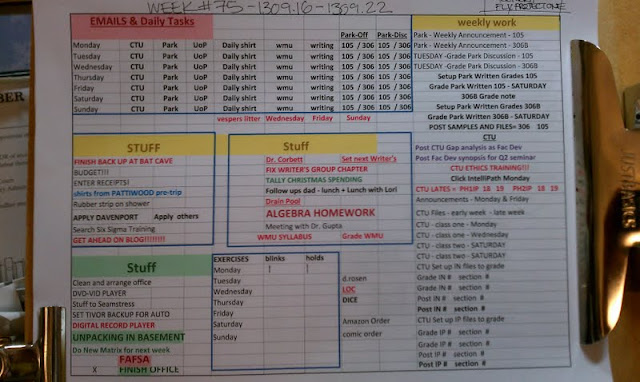 WEEK #75 - 1309.16 - 1309.22
BER
EMAILS & Daily Tasks
Park-Off Park-Disc
Monday CTU Park UoP Daily shirt wmu writing 105 / 306 105 / 306
Tuesday CTU Park UoP Daily shirt wmu writing 105 / 306 105 / 306
Wednesday CTU Park UoP Daily shirt wmu writing 105 / 306 105 / 306
Thursday CTU Park UoP Daily shirt wmu writing 105 / 306 105 / 306
Friday CTU Park UoP Daily shirt wmu writing 105 / 306 105 / 306
Saturday CTU Park UoP Daily shirt wmu writing 105 / 306 105 / 306
Sunday CTU Park UoP Daily shirt wmu writing 105 / 306 105 / 306
vespers litter Wednesday Friday Sunday
STUFF
FINISH BACK UP AT BAT CAVE
BUDGET!!!
ENTER RECEIPTS!
shirts from PATTIWOOD pre-trip
Rubber strip on shower
APPLY DAVENPORT Apply others
Search Six Sigma Training
GET AHEAD ON BLOG!!!!!!!!
Stuff
Dr. Corbett Set next Writer's
FIX WRITER'S GROUP CHAPTER
TALLY CHRISTMAS SPENDING
Follow ups dad - lunch + Lunch with Lori
Drain Pool
ALGEBRA HOMEWORK
Meeting with Dr. Gupta
WMU SYLLABUS Grade WMU
Stuff
Clean and arrange office
DVD-VID PLAYER
Stuff to Seamstress
SET TIVOR BACKUP FOR AUTO
DIGITAL RECORD PLAYER
UNPACKING IN BASEMENT
Do New Matrix for next week
FAFSA
X FINISH OFFICE
EXERCISES blinks holds
Monday
Tuesday
Wednesday
Thursday
Friday
Saturday
Sunday
d.rosen
LOC
DICE
Amazon Order
comic order
weekly work
Park - Weekly Announcement - 105
Park - Weekly Announcement - 306B
TUESDAY -Grade Park Discussion - 105
TUESDAY -Grade Park Discussion - 306B
Setup Park Written Grades 105
Grade Park Written 105 - SATURDAY
306B Grade note
Setup Park Written Grades 306B
Grade Park Written 306B - SATURDAY
POST SAMPLES AND FILES= 306 105
CTU
Post CTU Gap analysis as Fac Dev
Post Fac Dev synopsis for Q2 seminar
CTU ETHICS TRAINING!!!
Click IntelliPath Monday
CTU LATES = PH1IP 18 19 PH2IP 18 19
Announcements - Monday & Friday
CTU Files - early week - late week
CTU - class one - Monday
CTU - class one - Wednesday
CTU - class two - SATURDAY
CTU - class two - SATURDAY
CTU Set up IN files to grade
Grade IN # section #
Grade IN # section #
Post IN # section #
Post IN # section #
CTU Set up IP files to grade
Grade IP # section #
Grade IP # section #
Post IP # section #
Post IP # section #